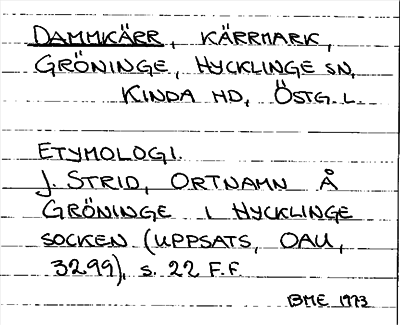 DAMMKÄRR, KÄRRMARK,
GRÖNINGE, HYCKLINGE SN,
KINDA HD, ÖSTG. L.
ETYMOLOGI.
J. STRID, ORTNAMN Å
GRÖNINGE I HYCKLINGE
SOCKEN (UPPSATS, OAU,
3299), s. 22 F.F
BME 1973